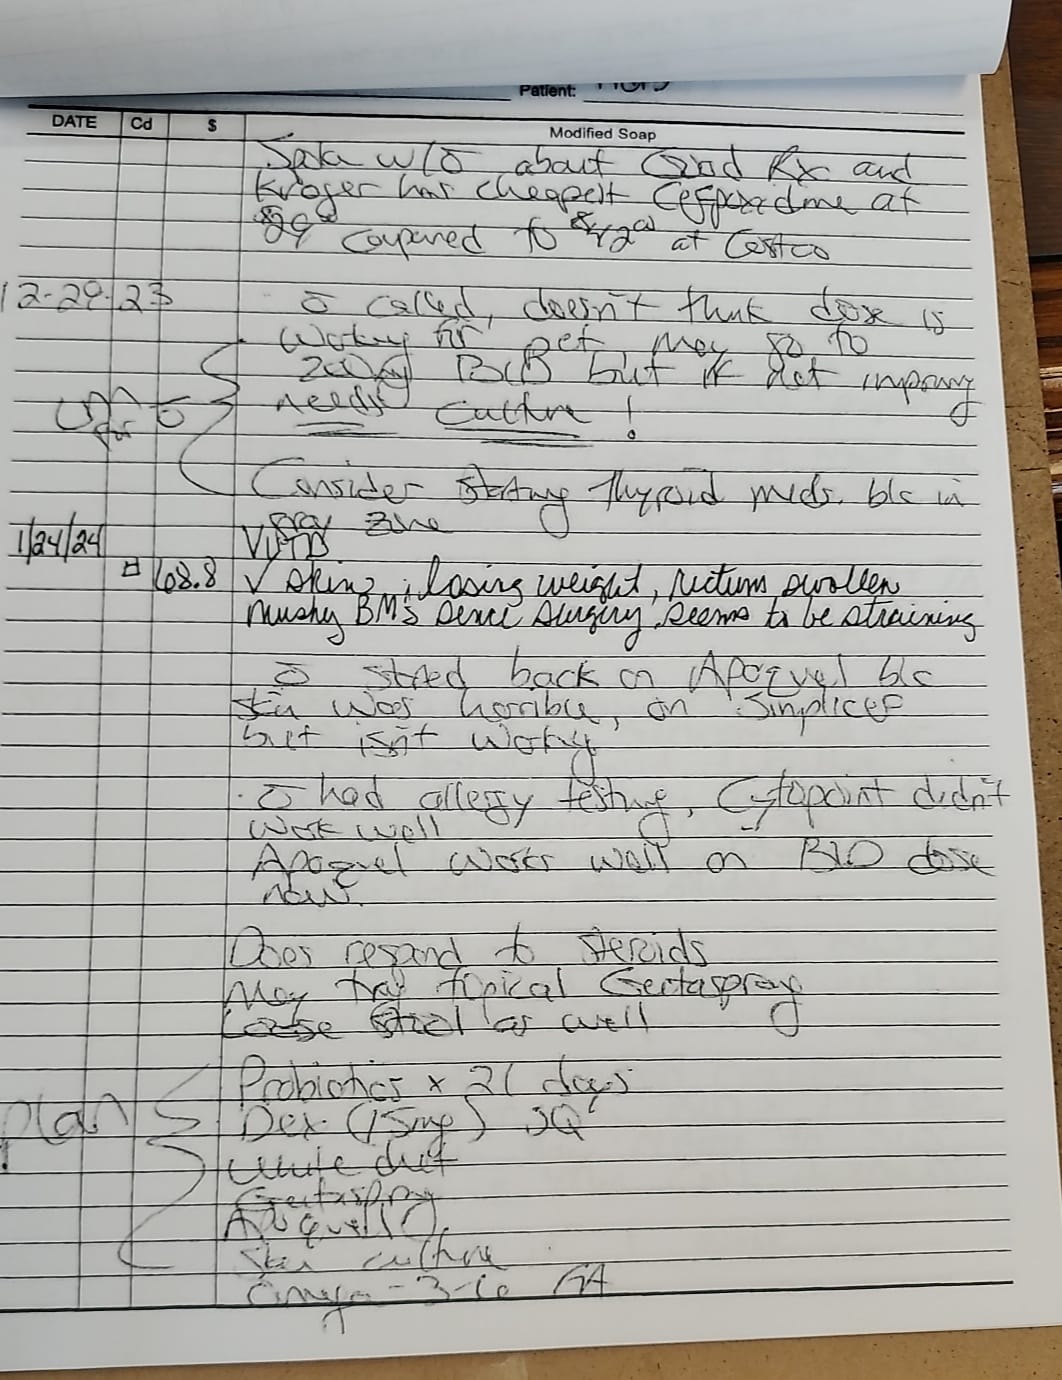 Patient:
DATE Cd $ Modified Soap
w/ō about Good Rx and
Kroger has cheapest Cefpodoxime at
$29 compared to $42 at Costco
12-29-23 ō called, doesn't think dose is
working for pet may go to
200mg BID but if not improving
for ō needs culture!
Consider starting thyroid meds. b/c in
gray zone
1/24/24
68.8 √ skin, losing weight, rectum swollen
mushy BM's sence surgery, seems to be straining
ō started back on Apoquel b/c
skin was horrible, on Simplicef
but isn't working
ō had allergy testing, Cytopoint didn't
work well
Apoquel works well on BID dose
now.
Does respond to steroids
May try topical Gentaspray
Loose stool as well
Probiotics x 21 days
plan Dex (15mg) SQ
diet
Gentaspray
Apoquel
Skin culture
Omega-3-6 FA